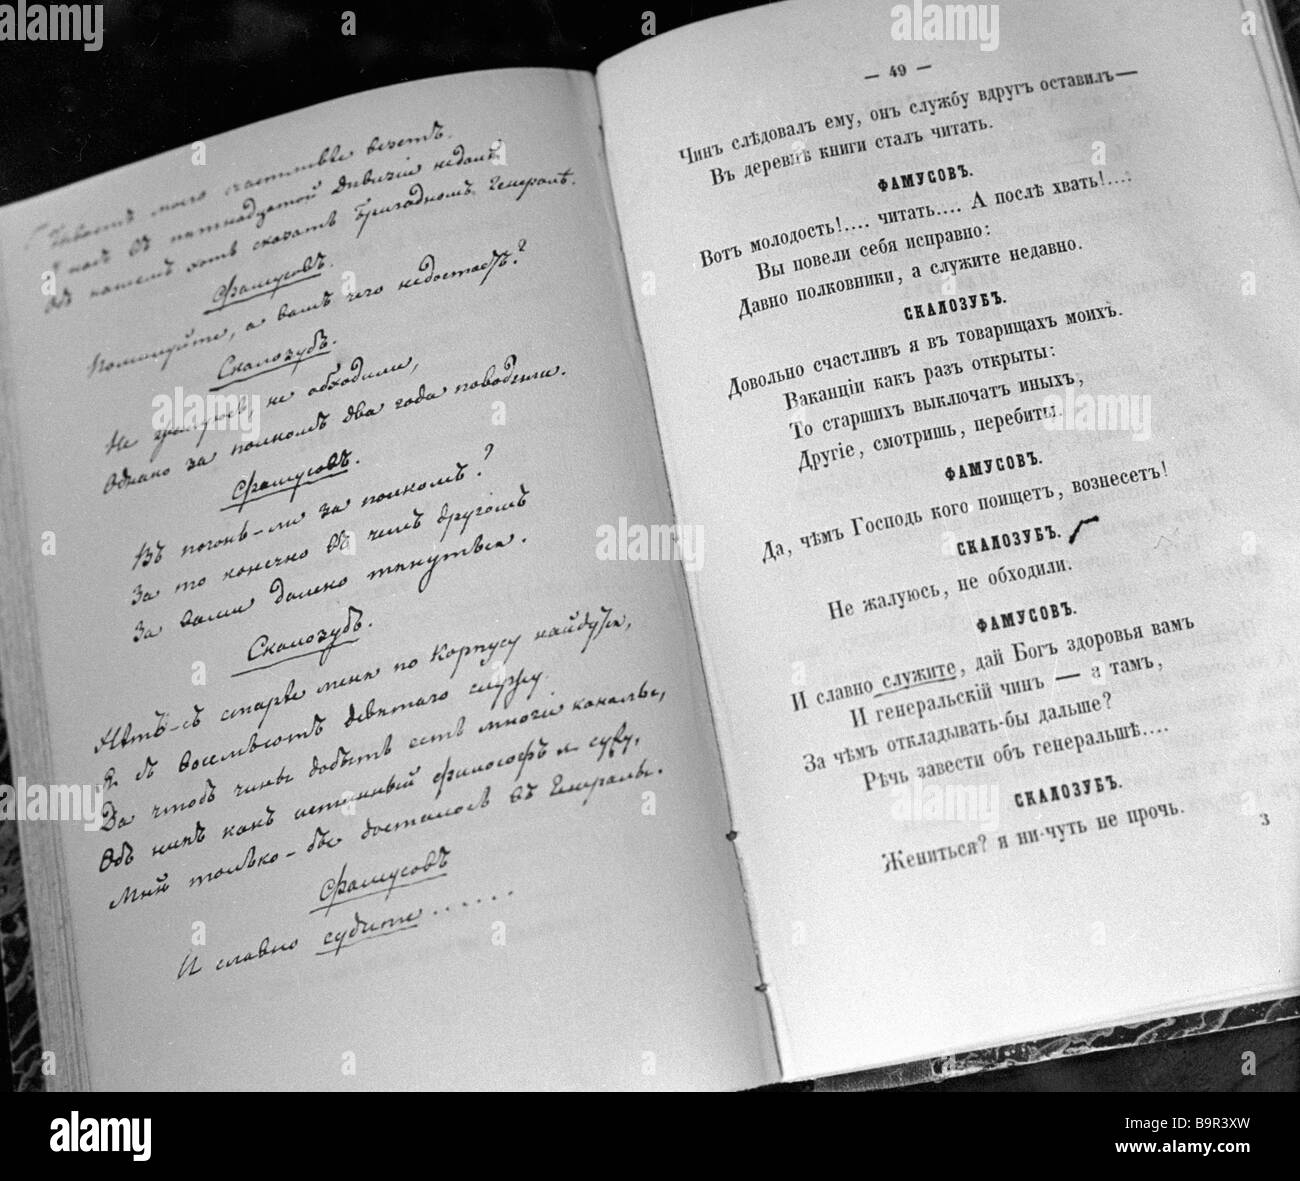 Бываетъ моего счастливѣе везетъ.
У насъ въ пятнадцатой дивизіи не далѣ
Объ нашемъ хоть сказать бригадномъ Генералѣ.
Фамусовъ.
Помилуйте, а вамъ чего недостаетъ?
Скалозубъ.
Не жалуюсь, не обходили,
Однако за полкомъ два года поводили.
Фамусовъ.
Въ погонь-ли за полкомъ?
За то конечно въ чемъ другомъ
За вами далеко тянуться.
Скалозубъ.
Нѣтъ-съ старѣе меня по Корпусу найдутся,
Я съ восемьсотъ девятаго служу.
Да чтобъ чины добыть есть многіе каналы,
Объ нихъ какъ истинный философъ я сужу,
Мнѣ только-бы досталось въ Генералы.
Фамусовъ
И славно судите......
— 49 —
Чинъ слѣдовалъ ему, онъ службу вдругъ оставилъ—
Въ деревнѣ книги сталъ читать.
ФАМУСОВЪ.
Вотъ молодость!.... читать.... А послѣ хвать!....
Вы повели себя исправно:
Давно полковники, а служите недавно.
СКАЛОЗУБЪ.
Довольно счастливъ я въ товарищахъ моихъ.
Ваканціи какъ разъ открыты:
То старшихъ выключатъ иныхъ,
Другіе, смотришь, перебиты.
ФАМУСОВЪ.
Да, чѣмъ Господь кого поищетъ, вознесетъ!
СКАЛОЗУБЪ.
Не жалуюсь, не обходили.
ФАМУСОВЪ.
И славно служите, дай Богъ здоровья вамъ
И генеральскій чинъ — а тамъ,
За чѣмъ откладывать-бы дальше?
Рѣчь завести объ генеральшѣ....
СКАЛОЗУБЪ.
Жениться? я ни-чуть не прочь.
3
alamy
Image ID: B9R3XW
www.alamy.com